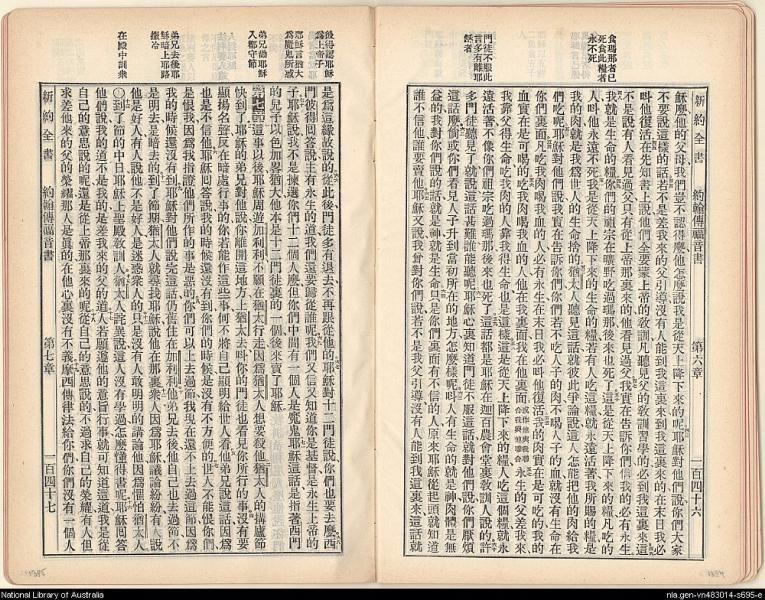 食瑪那者已
死食此糧者
永不死
門徒不服此
言多有離耶
穌者
新約全書 約翰傳福音書 第六章 一百四十六
穌麼他的父母我們豈不認得麼他怎麼說我是從天上降下來的呢耶穌對他們說你們大家
不要說這樣的話若不是差我來的父引導沒有人能到我這裏來到我這裏來的在末日我必
叫他復活在先知書上說他們全要蒙上帝的教訓凡聽見父的教訓習學的必到我這裏來這
不是說有人看見過父只有從上帝那裏來的他看見過父我實在告訴你們信我的必有永生
我就是生命的糧你們的祖宗在曠野吃過瑪那後來也死了這是從天上降下來的糧凡吃的
人叫他永遠不死我是從天上降下來的生命的糧若有人吃這糧就永遠活著我所賜的糧是
我的肉就是我爲世人的生命捨的猶太人聽見這話就彼此爭論說這人怎能把他的肉給我
們吃呢耶穌對他們說我實在告訴你們你們若不吃人子的肉不喝人子的血就沒有生命在
你們裏面凡吃我肉喝我血的人必有永生在末日我必叫他復活我的肉實在是可吃的我的
血實在是可喝的吃我肉喝我血的人他在我裏面我在他裏面永生的父差我來
我靠父得生命吃我肉的人靠我得生命也是這樣這是從天上降下來的糧人吃這個糧就永
遠活著不像你們祖宗吃過瑪那後來也死了這話都是耶穌在迦百農會堂裏教訓人說的許
多門徒聽見了就說這話甚難誰能聽呢耶穌心裏知道門徒不服這話就對他們說你們厭煩
這話麼倘或你們看見人子升到當初所在的地方怎麼樣呢叫人有生命的就是神肉體是無
益的我對你們說的話就是神就是生命只是你們裏面有不信的人原來耶穌從起頭就知道
誰不信他誰要賣他耶穌又說我曾對你們說若不是我父引導沒有人能到我這裏來這話就
彼得認耶穌
爲上帝子
耶穌言猶大
爲魔鬼所惑
弟兄勸耶穌
入都守節
弟兄去後耶
穌暗上耶路
撒冷
在殿中訓衆
是爲這緣故說的從此後門徒多有退去不再跟從他的耶穌對十二門徒說你們也要去麼西
門彼得回答說主有永生的道我們還要歸從誰呢我們又信又知道你是基督是永生上帝的
子耶穌說我不是揀選你們十二個人麼但你們中間有一個人是魔鬼耶穌這話是指著西門
的兒子以色加畧猶大他本是十二門徒裏的一個後來賣了耶穌
第七章這事以後耶穌周遊加利利不願在猶太行走因爲猶太人想要殺他猶太人的搆廬節
快到了耶穌的弟兄對他說你離開這地方上猶太去叫你的門徒也看見你所行的事沒有要
顯揚名聲反在暗處行事的你若能作這些事何不將自己顯明給世人看他弟兄說這話因爲
也是不信他耶穌回答說我的時候還沒有到你們的時候是沒有不方便的世人不能恨你們
是恨我因爲我指證他們所作的事是惡的你們可以上去過節我現在還不上去過這節因爲
我的時候還沒有到耶穌對他們說完這話仍舊住在加利利他弟兄去後他自己也去過節不
是明去是暗去的到了節期猶太人就尋找耶穌說他在那裏衆人因爲耶穌議論紛紛有人說
他是好人有人說他不是好人是迷惑衆人的只是沒有人敢明明的講論他因爲懼怕猶太人
○到了節的中日耶穌上聖殿敎訓人猶太人詫異說這人沒有學過怎麼懂得書呢耶穌回答
他們說我的道不是我的是差我來的父的道人若願遵他的意旨行事就可知道這道我是從
自己的意思說的呢還是從上帝那裏來的呢從自己的意思說的不過求自己的榮耀有人但
求差他來的父的榮耀那人是眞的在他心裏沒有不義摩西傳律法給你們你們沒有一個人
新約全書 約翰傳福音書 第七章 一百四十七
National Library of Australia
nla.gen-vn483014-s695-e